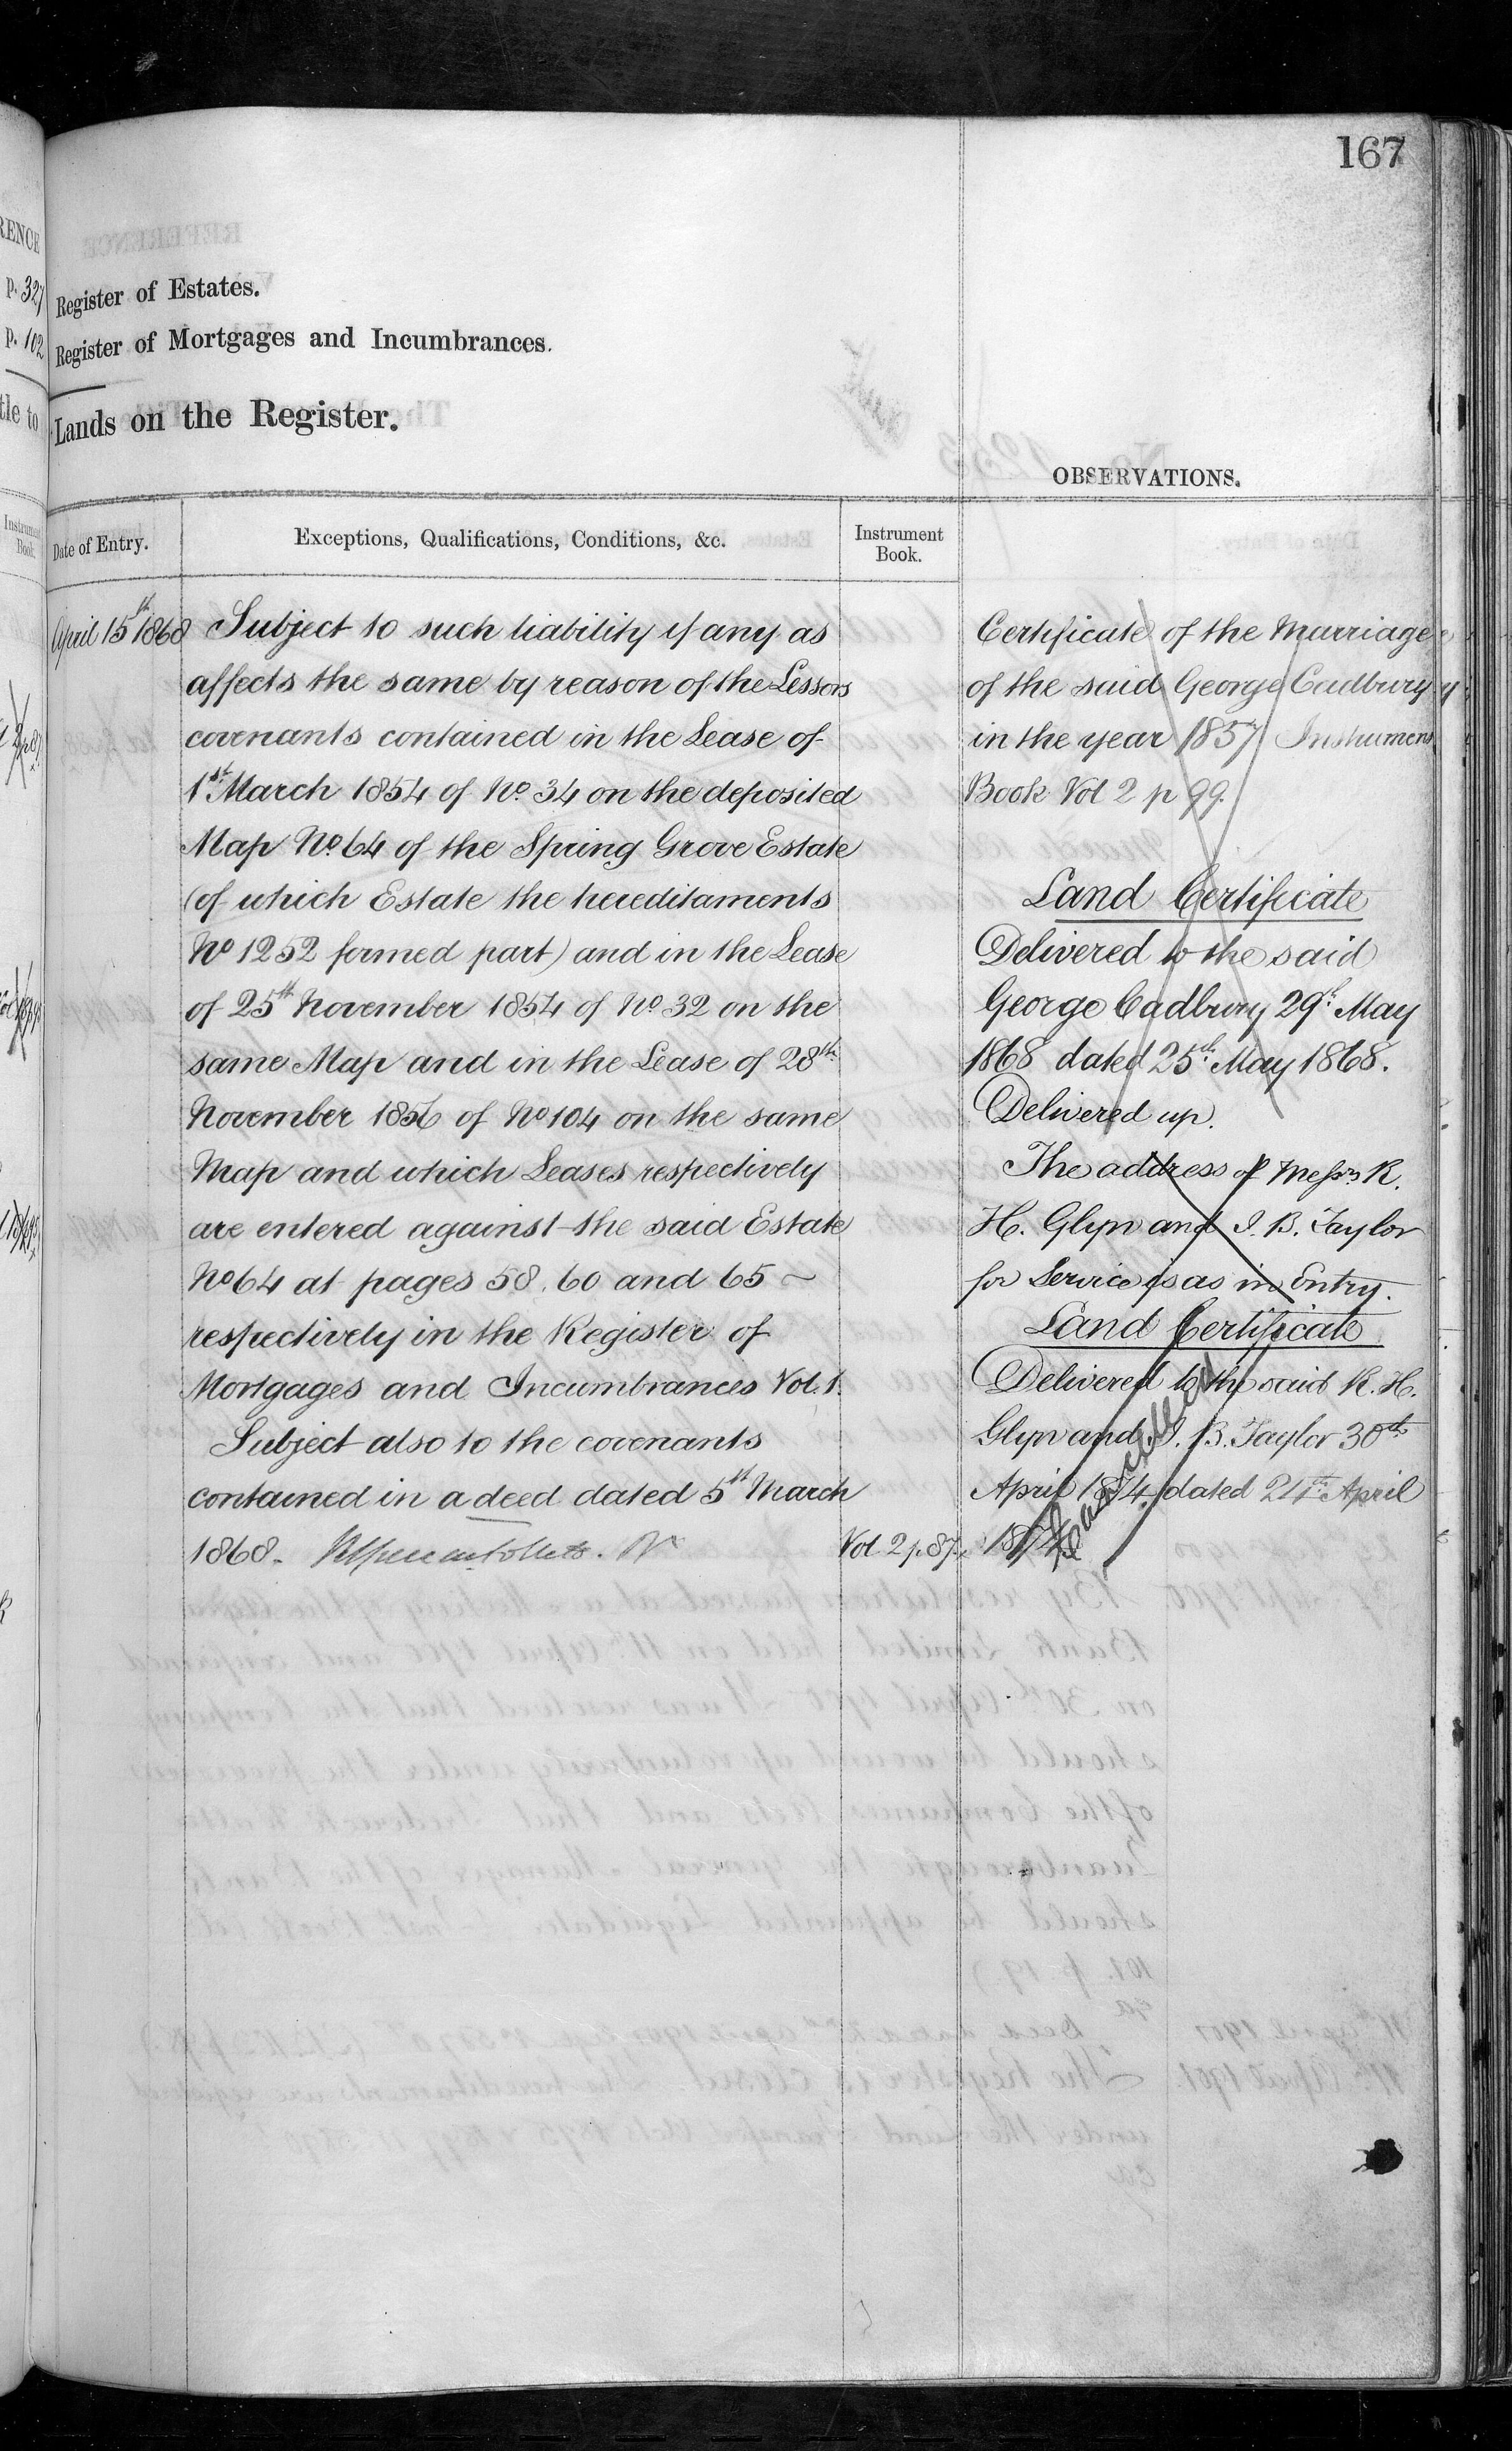 167
RENCE
p. 327
p. 102
tle to
Instrument
Book.
Register of Estates.
Register of Mortgages and Incumbrances.
Lands on the Register.
OBSERVATIONS.
Date of Entry.
Exceptions, Qualifications, Conditions, &c.
Instrument
Book.
April 15th 1868
Subject to such liability if any as
affects the same by reason of the Lessors
covenants contained in the Lease of
1st March 1854 of No. 34 on the deposited
Map No. 64 of the Spring Grove Estate
(of which Estate the hereditaments
No 1252 formed part) and in the Lease
of 25th November 1854 of No. 32 on the
same Map and in the Lease of 28th
November 1856 of No 104 on the same
Map and which Leases respectively
are entered against the said Estate
No 64 at pages 58. 60 and 65 ~
respectively in the Register of
Mortgages and Incumbrances Vol. 1.
Subject also to the covenants
contained in a deed dated 5th March
1868.
Vol. 2 p. 87.
Certificate of the Marriage
of the said George Cadbury
in the year 1857 Instrument
Book Vol 2 p 99.
Land Certificate
Delivered to the said
George Cadbury 29th May
1868 dated 25th May 1868.
Delivered up.
The address of Messrs R.
H. Glyn and I. B. Taylor
for Service is as in Entry.
Land Certificate
Delivered to the said R. H.
Glyn and I. B. Taylor 30th
April 1874 dated 21st April
1874
Cancelled